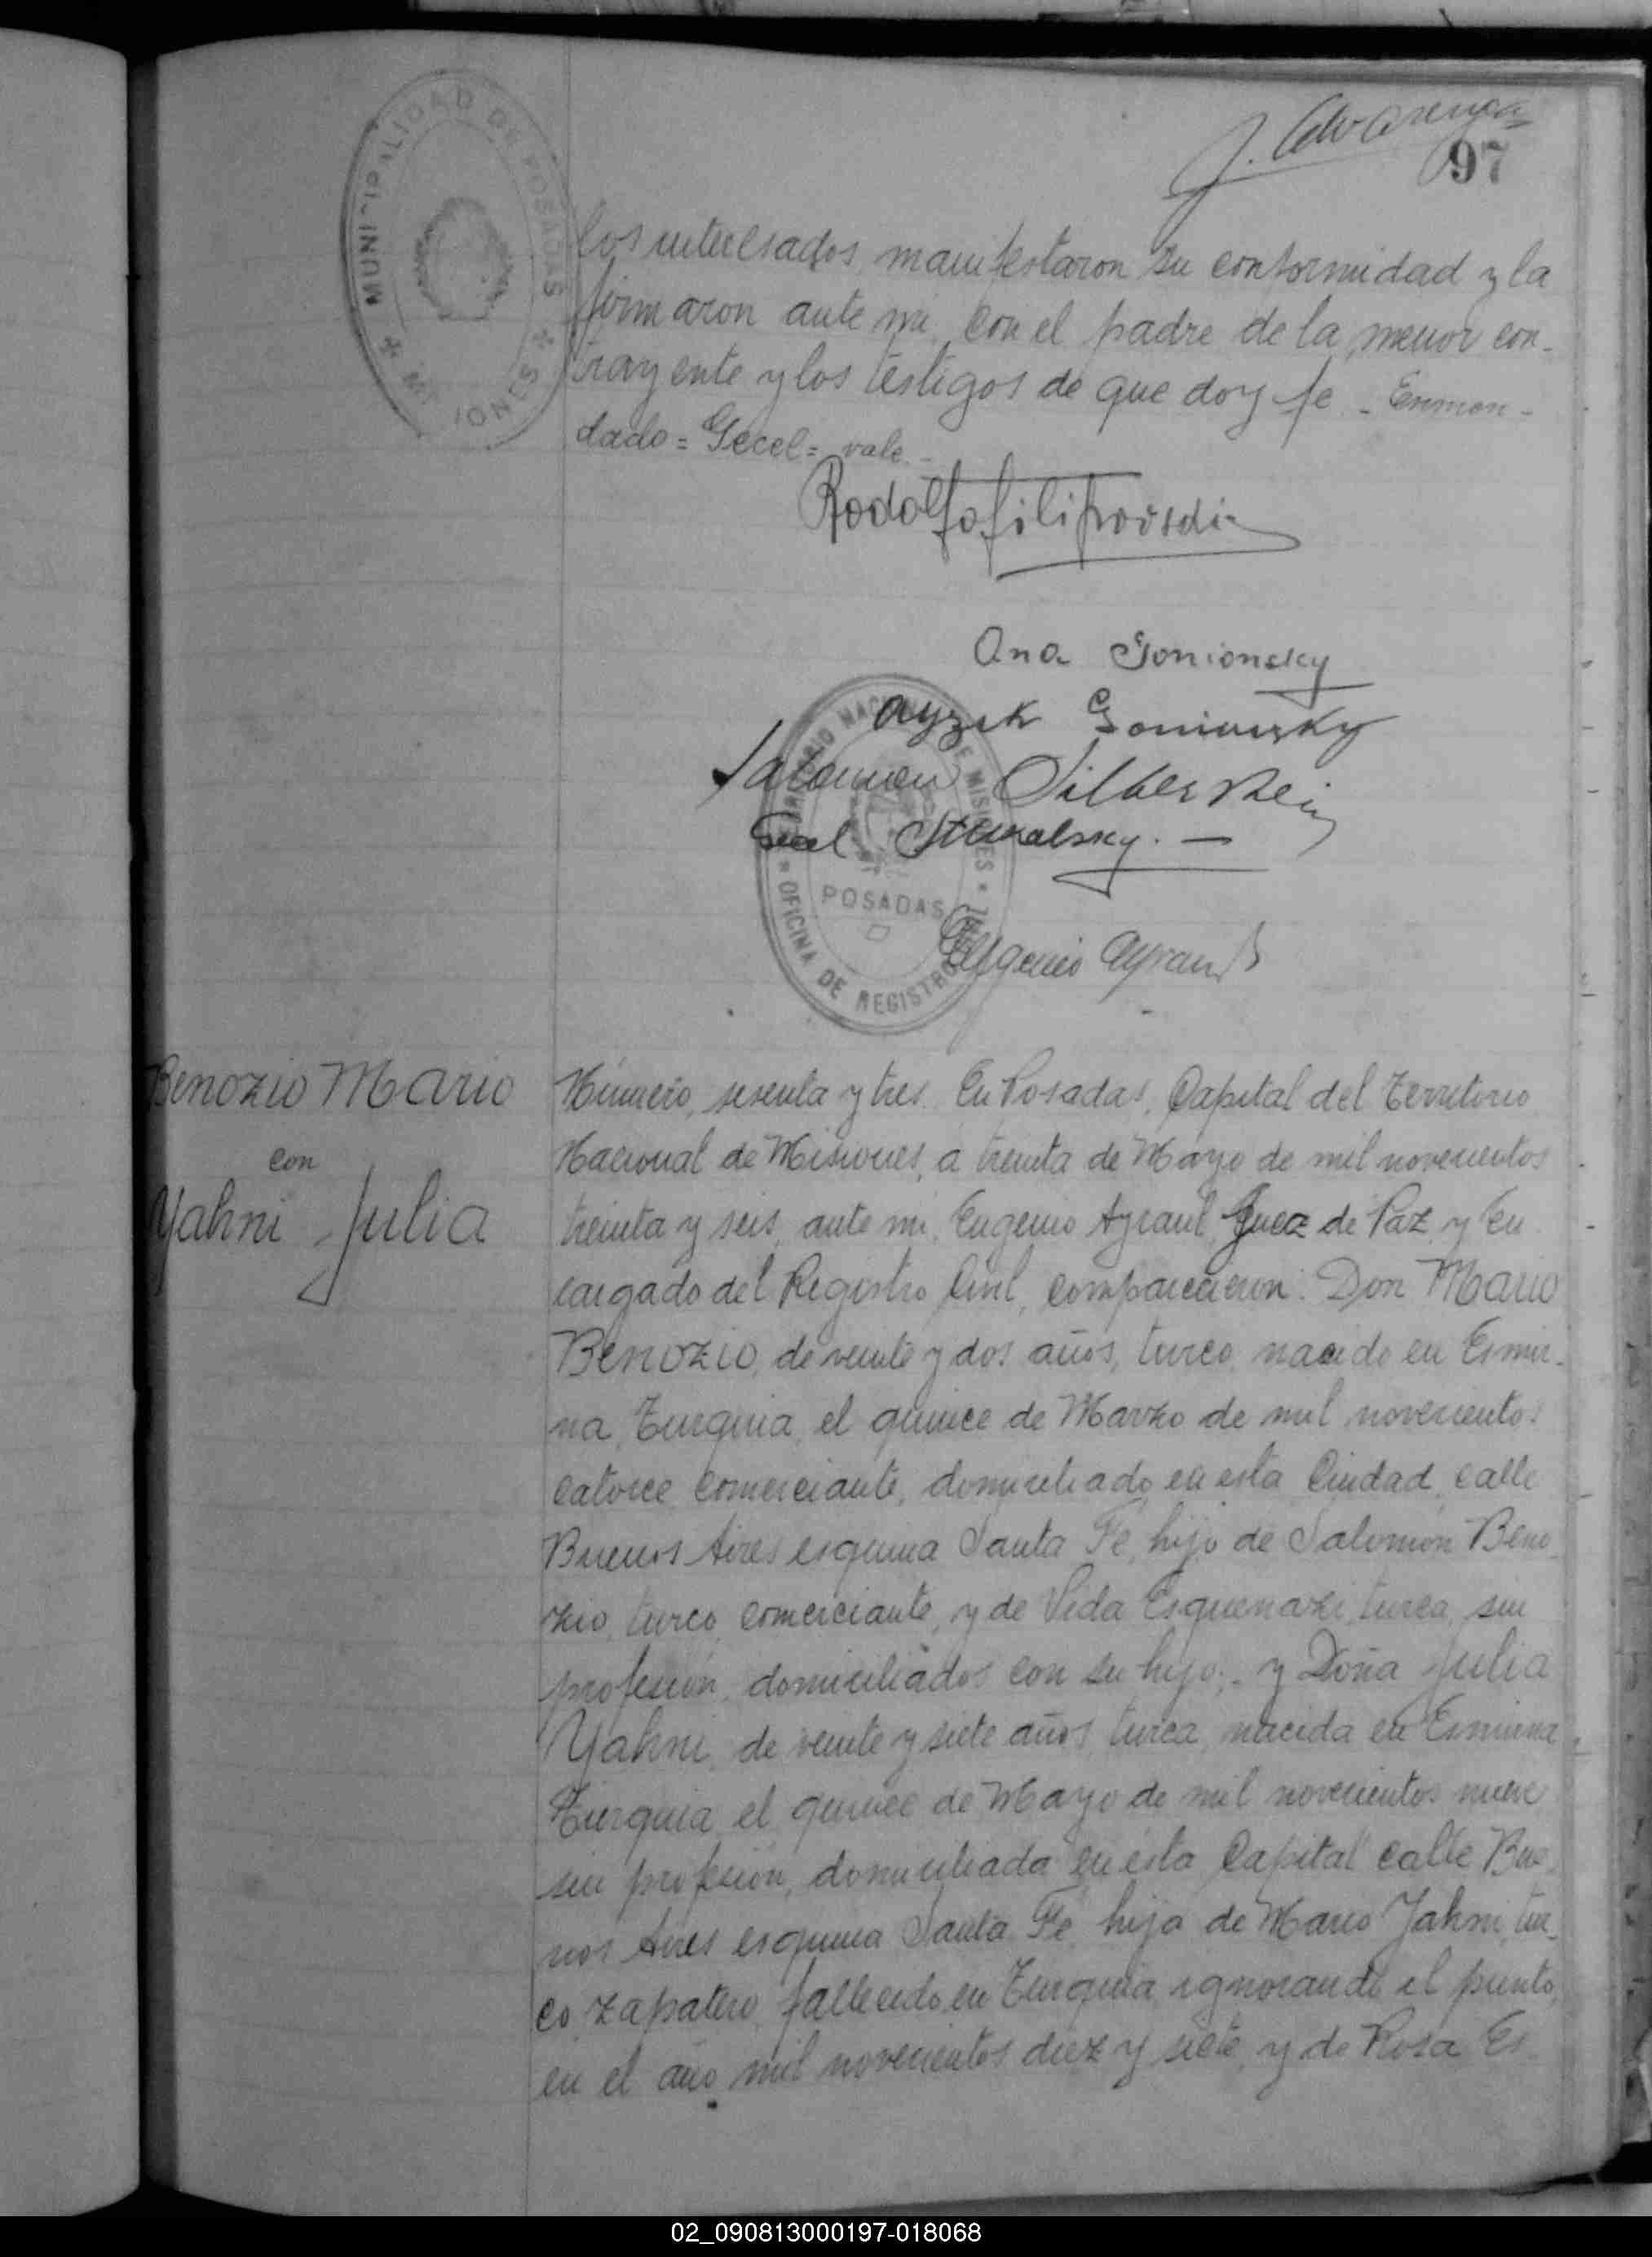 J. Alvarenga
97
MUNICIPALIDAD DE POSADAS
MISIONES
los interesados, manifestaron su conformidad y la
firmaron ante mi, con el padre de la menor con-
trayente y los testigos de que doy fe. - Enmen-
dado = Gecel = vale. -
Rodolfo Filipovsdi
Ana Gonionsky
Ayzik Gonionsky
Salomon Silberstein
Gecel Stukalsky. -
Eugenio Ayrault
TERRITORIO NACIONAL DE MISIONES
POSADAS
OFICINA DE REGISTRO
Benozio Mario
con
Yahni Julia
Número, sesenta y tres. En Posadas, Capital del Territorio
Nacional de Misiones, a treinta de Mayo de mil novecientos
treinta y seis, ante mi, Eugenio Ayraul, Juez de Paz y En
cargado del Registro Civil, comparecieron: Don Mario
Benozio, de veinte y dos años, turco, nacido en Esmir-
na, Turquia, el quince de Marzo de mil novecientos
catorce, comerciante, domiciliado en esta Ciudad, calle
Buenos Aires esquina Santa Fé, hijo de Salomón Beno
zio, turco, comerciante, y de Vida Esquenazi, turca, sin
profesión, domiciliados con su hijo; - y Doña Julia
Yahni, de veinte y siete años, turca, nacida en Esmirna
Turquia, el quince de Mayo de mil novecientos nueve
sin profesión, domiciliada en esta Capital calle Bue
nos Aires esquina Santa Fé, hija de Mario Jahni, tur-
co, zapatero, fallecido en Turquia, ignorando el punto,
en el año mil novecientos diez y siete, y de Rosa Es
02_090813000197-018068